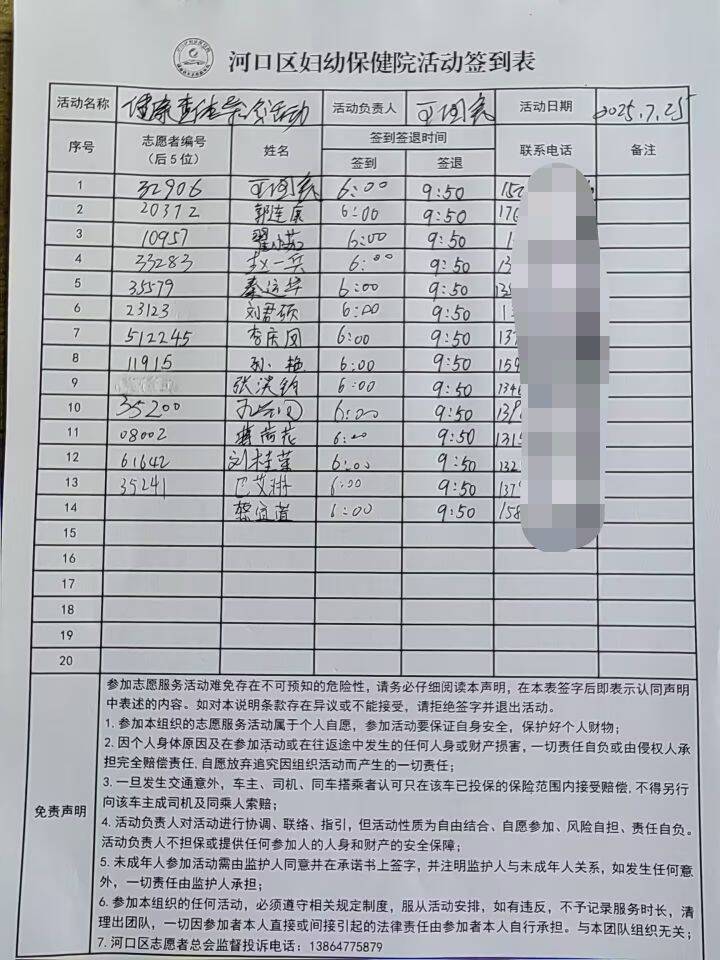 河口区妇幼保健院活动签到表
活动名称 健康 活动 活动负责人 活动日期 2025.7.25
序号 志愿者编号（后5位） 姓名 签到签退时间 联系电话 备注
签到 签退
1 32906 6:00 9:50
2 20372 郭连康 6:00 9:50
3 10957 翟小苏 6:00 9:50
4 33283 赵一兵 6:00 9:50
5 35579 秦运华 6:00 9:50
6 23123 刘君硕 6:00 9:50
7 512245 李庆国 6:00 9:50
8 11915 孙艳 6:00 9:50
9 张洪铃 6:00 9:50
10 35200 6:00 9:50
11 08002 蒋荷花 6:00 9:50
12 61642 刘桂荣 6:00 9:50
13 35241 巴艾琳 6:00 9:50
14 6:00 9:50
15
16
17
18
19
20
免责声明
参加志愿服务活动难免存在不可预知的危险性，请务必仔细阅读本声明，在本表签字后即表示认同声明
中表述的内容。如对本说明条款存在异议或不能接受，请拒绝签字并退出活动。
1. 参加本组织的志愿服务活动属于个人自愿，参加活动要保证自身安全，保护好个人财物；
2. 因个人身体原因及在参加活动或在往返途中发生的任何人身或财产损害，一切责任自负或由侵权人承
担完全赔偿责任，自愿放弃追究因组织活动而产生的一切责任；
3. 一旦发生交通意外，车主、司机、同车搭乘者认可只在该车已投保的保险范围内接受赔偿，不得另行
向该车主成司机及同乘人索赔；
4. 活动负责人对活动进行协调、联络、指引，但活动性质为自由结合、自愿参加、风险自担、责任自负。
活动负责人不担保或提供任何参加人的人身和财产的安全保障；
5. 未成年人参加活动需由监护人同意并在承诺书上签字，并注明监护人与未成年人关系，如发生任何意
外，一切责任由监护人承担；
6. 参加本组织的任何活动，必须遵守相关规定制度，服从活动安排，如有违反，不予记录服务时长，清
理出团队，一切因参加者本人直接或间接引起的法律责任由参加者本人自行承担。与本团队组织无关；
7. 河口区志愿者总会监督投诉电话：13864775879